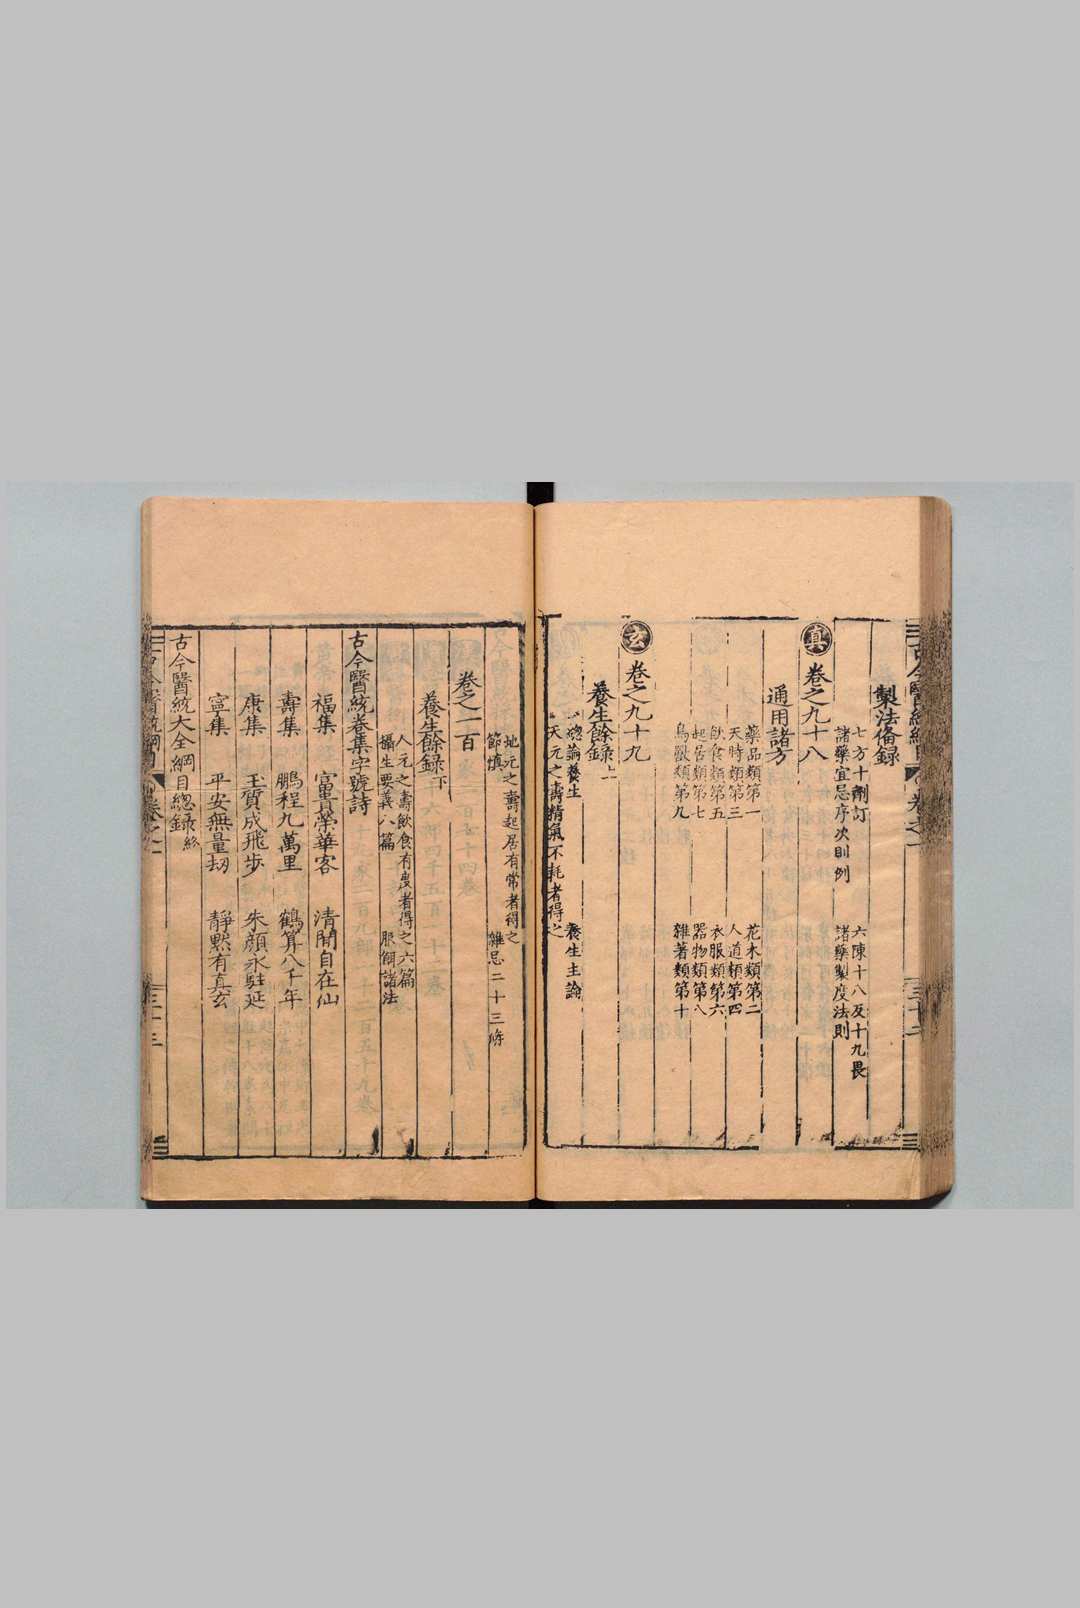 製法備録
七方十劑訂 六陳十八及十九畏
諸藥宜忌序次則例 諸藥製度法則
真 卷之九十八
通用諸方
藥品類第一 花木類第二
天時類第三 人道類第四
飲食類第五 衣服類第六
起居類第七 器物類第八
鳥獸類第九 雜著類第十
玄 卷之九十九
養生餘錄上
總論養生 養生主論
天元之壽精氣不耗者得之
地元之壽起居有常者得之 雜忌二十三條
節慎
卷之一百
養生餘錄下
人元之壽飲食有度者得之六篇
攝生要義八篇 服餌諸法
古今醫統卷集字號詩
福集 富貴榮華客 清閒自在仙
壽集 鵬程九萬里 鶴算八千年
康集 玉質成飛步 朱顔永駐延
寧集 平安無量刼 靜默有真玄
古今醫統大全綱目總録終